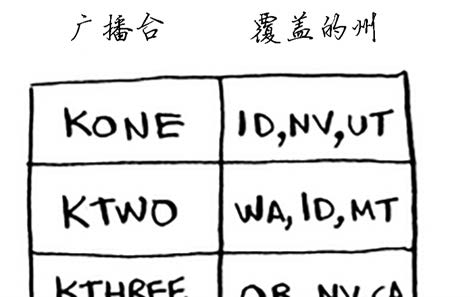 广播台 覆盖的州
KONE ID,NV,UT
KTWO WA,ID,MT
KTHREE OR,NV,CA